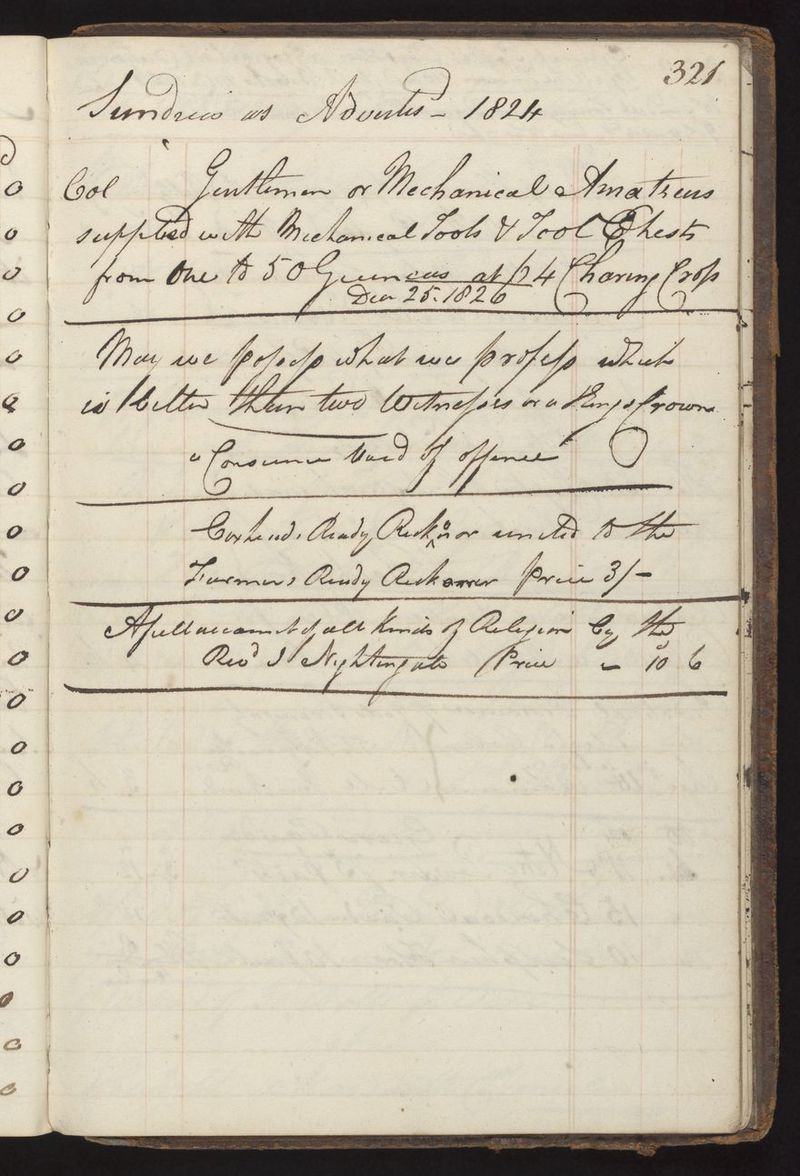 321
Sundries as Advertis - 1824
Col Gentlemen or Mechanical Amateurs
supplied with Mechanical Tools & Tool Chests
from One to 50 Guineas at 124 Charing Cross
Decr 25. 1826
May we possess what we profess which
is better than two Witnesses or a Kings Crown
"Consience Void of offence
Corheads Ready Reckonor united to the
Farmers Ready Reckoner Price 3/-
A full account of all Kinds of Religion by the
Revd J Nightingale Price - 10 6